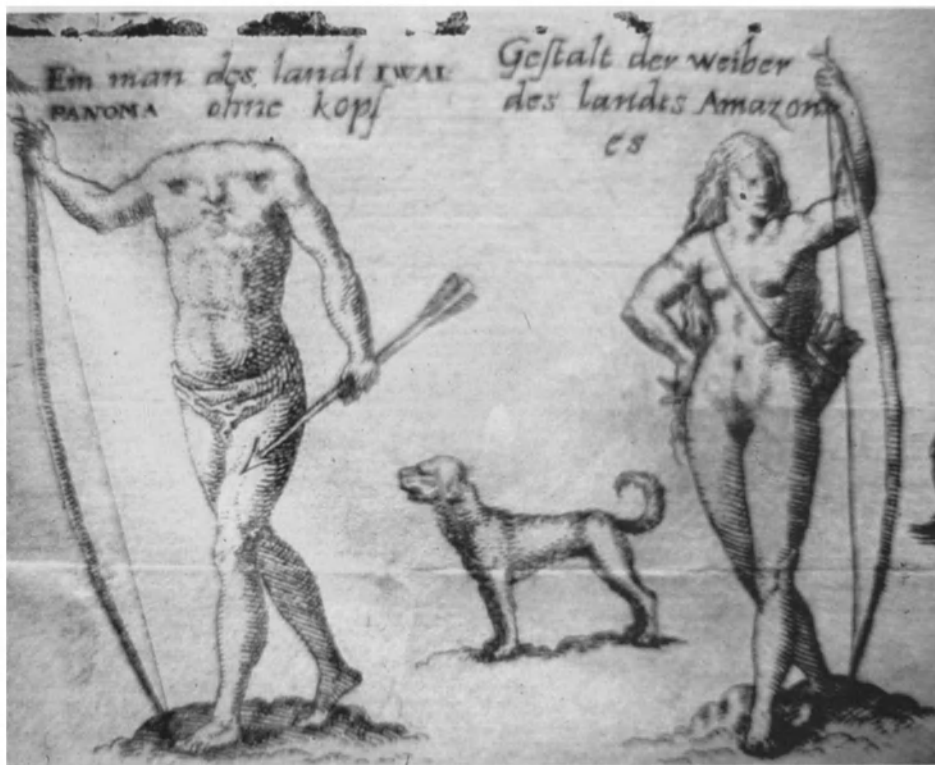 Ein man des landt IWAI
PANOMA ohne kopf
Gestalt der weiber
des landts Amazon
es